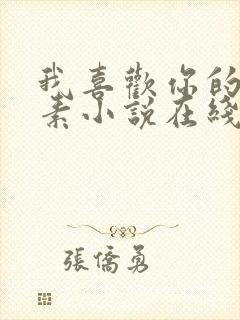 我喜歡你的
素小說在綫
張僑勇